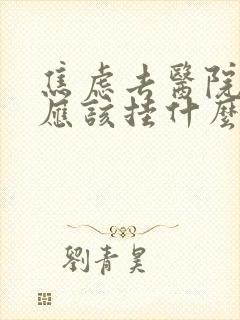 焦慮去醫院
應該掛什麼
劉青昊